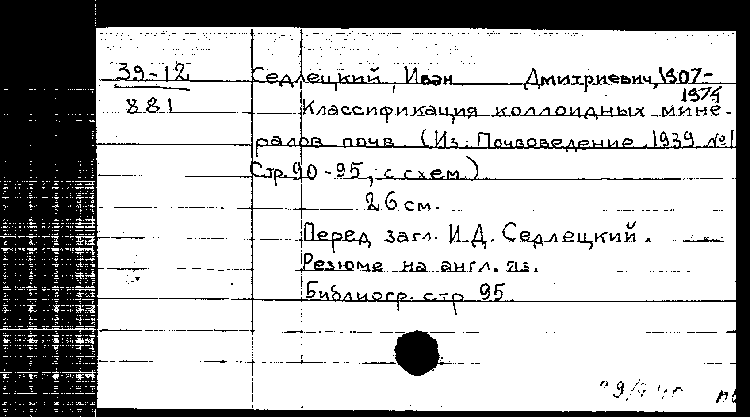 39-12
881
Седлецкий, Иван Дмитриевич, 1907-
1974
Классификация коллоидных мине-
ралов почв. (Из: Почвоведение, 1939 №1
Стр. 90-95, с схем.)
26 см.
Перед загл. И.Д. Седлецкий.
Резюме на англ. яз.
Библиогр. стр 95.